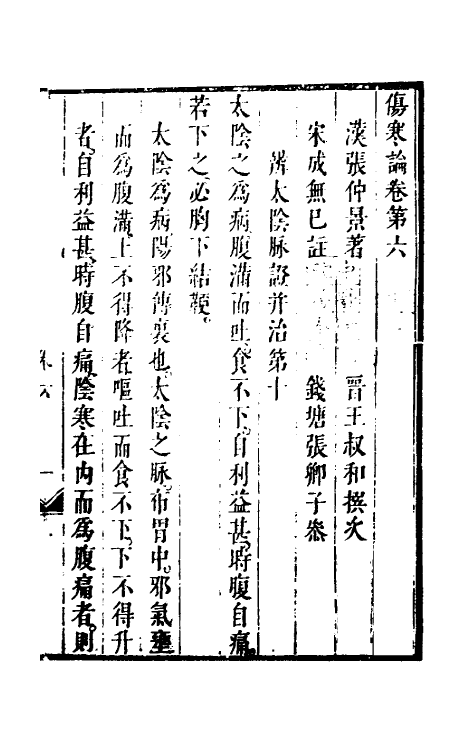 傷寒論卷第六
漢張仲景著 晉王叔和撰次
宋成無已註 錢塘張卿子叅
辨太陰脉證并治第十
太陰之為病腹滿而吐食不下自利益甚時腹自痛
若下之必胸下結鞕
太陰為病陽邪傳裏也太陰之脉布胃中邪氣壅
而為腹滿上不得降者嘔吐而食不下下不得升
者自利益甚時腹自痛陰寒在内而為腹痛者則
卷六 一